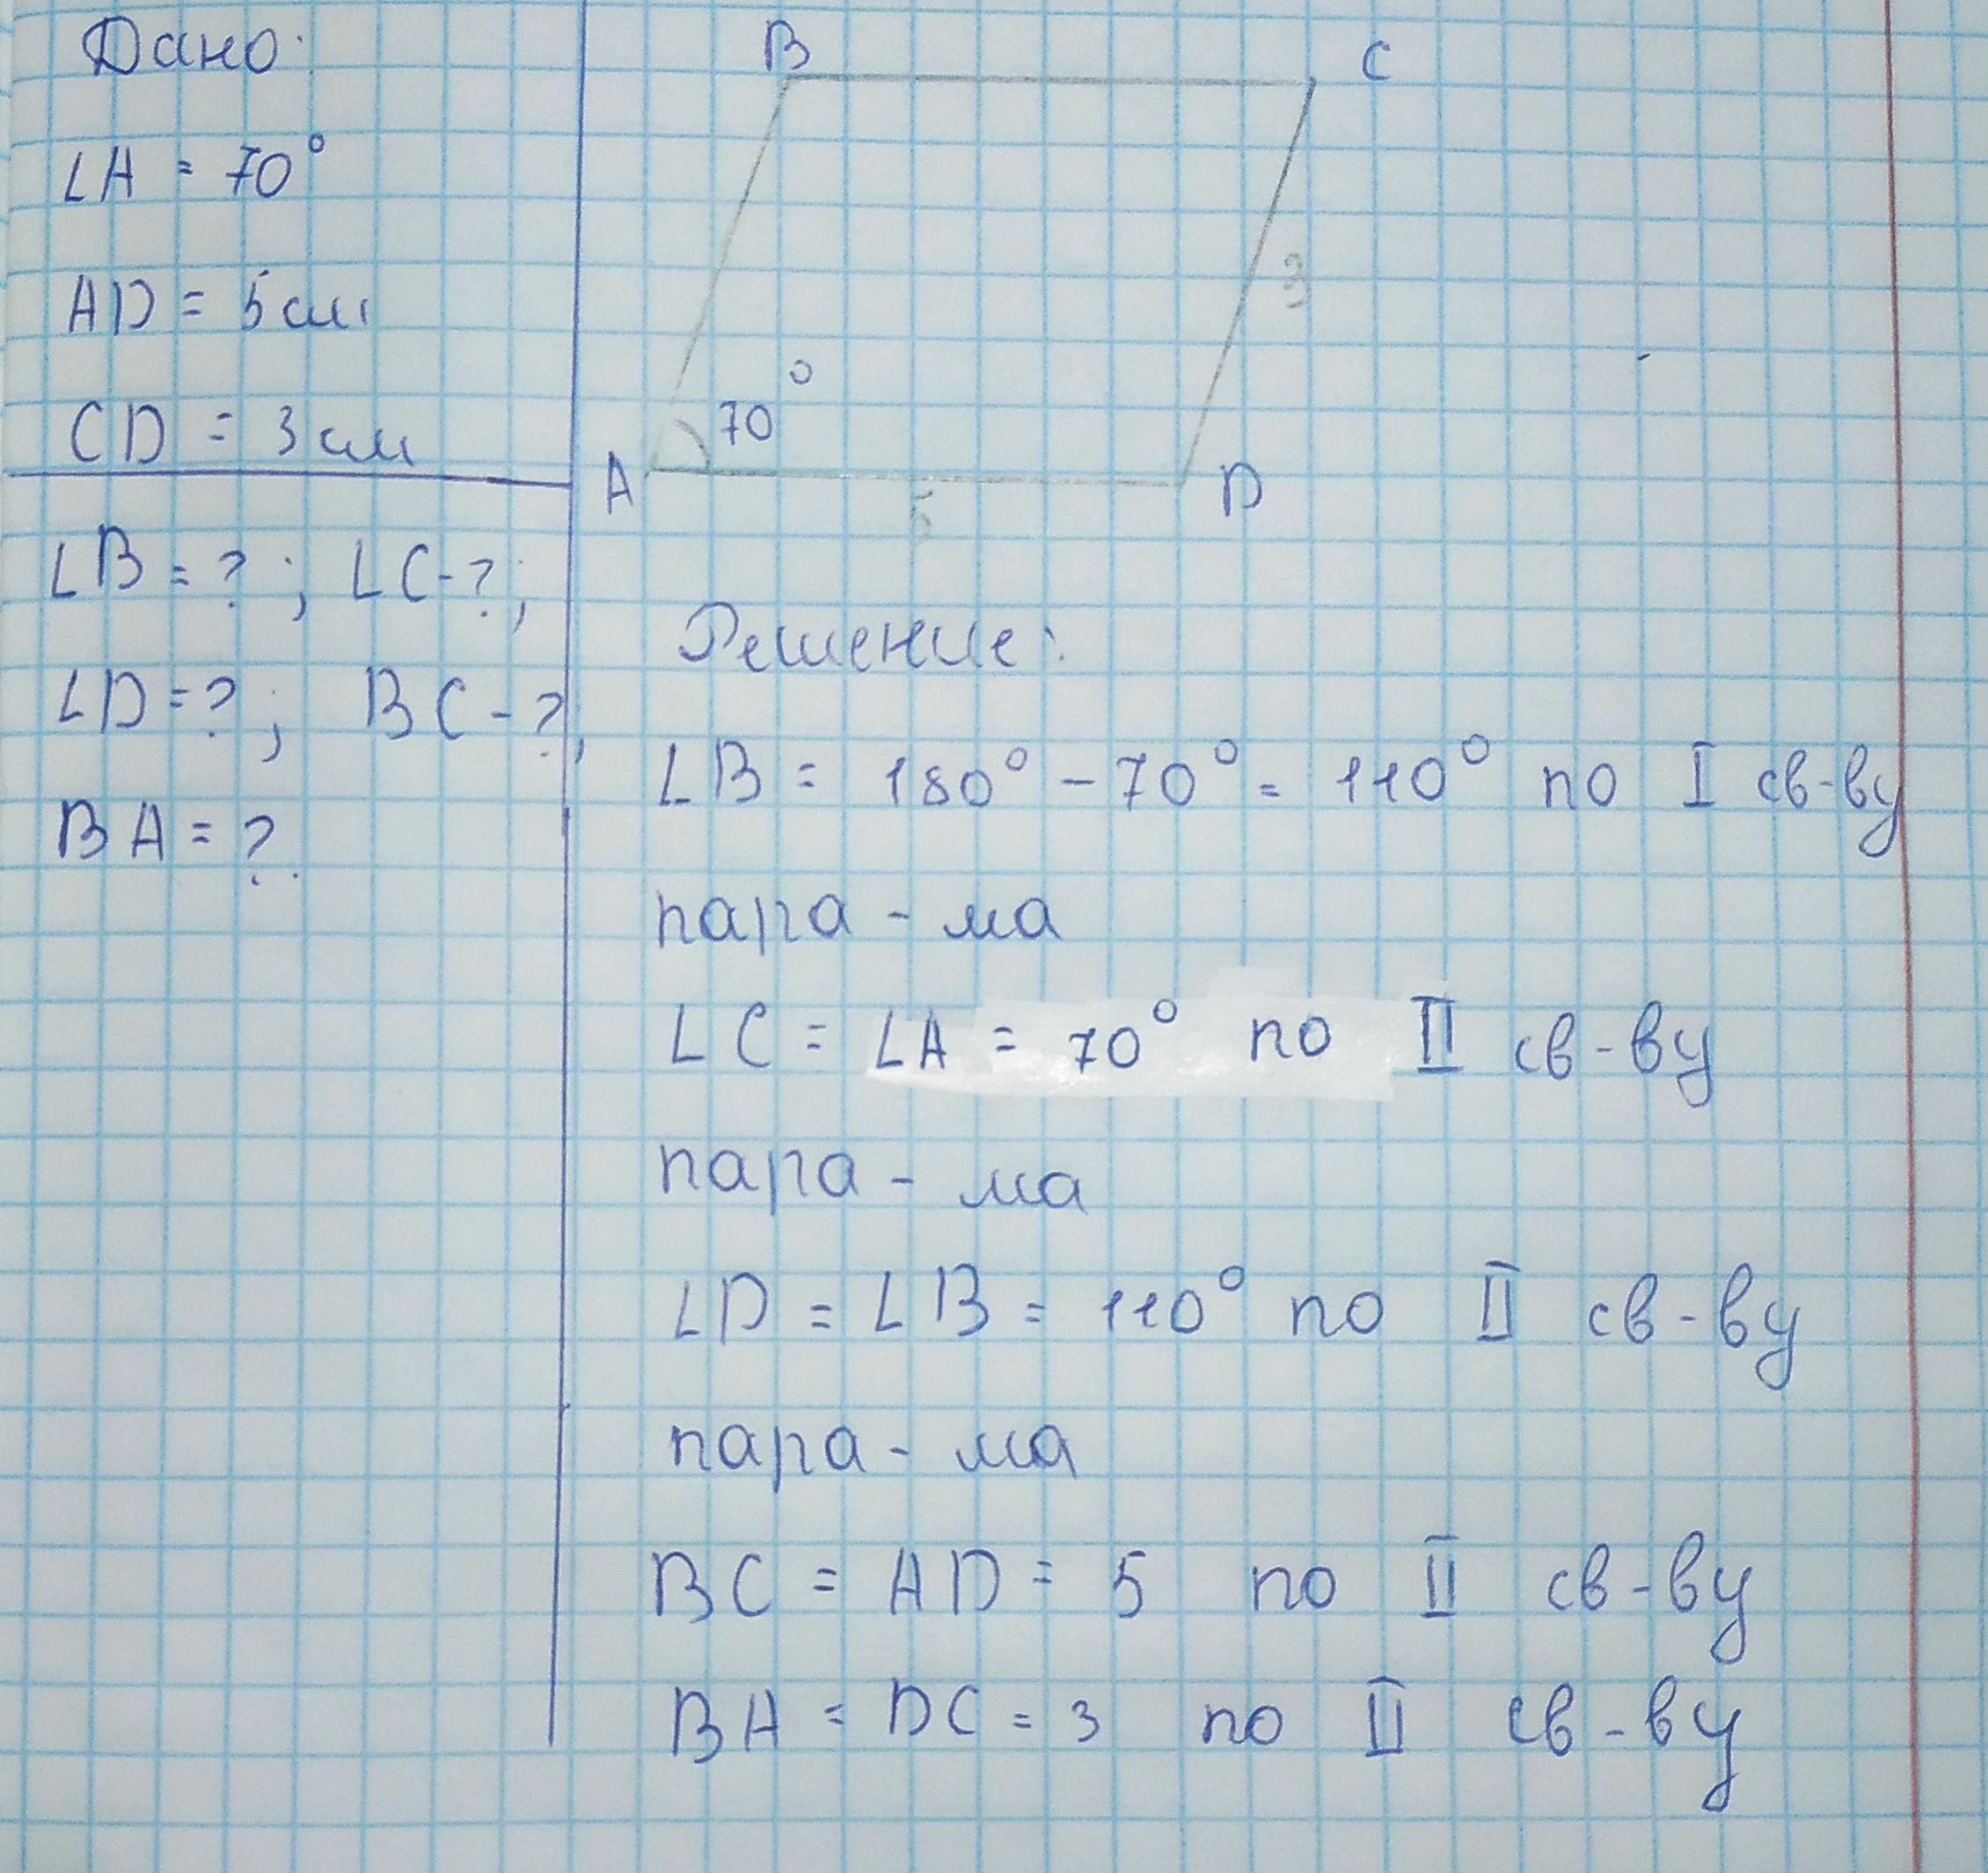 Дано:
∠A = 70°
AD = 5 см
CD = 3 см
∠B = ? ; ∠C - ? ;
∠D = ? ; BC - ? ;
BA = ?
B
C
3
70°
A
D
5
Решение:
∠B = 180° - 70° = 110° по I св-ву
пара - ма
∠C = ∠A = 70° по II св-ву
пара - ма
∠D = ∠B = 110° по II св-ву
пара - ма
BC = AD = 5 по II св-ву
BA = DC = 3 по II св-ву